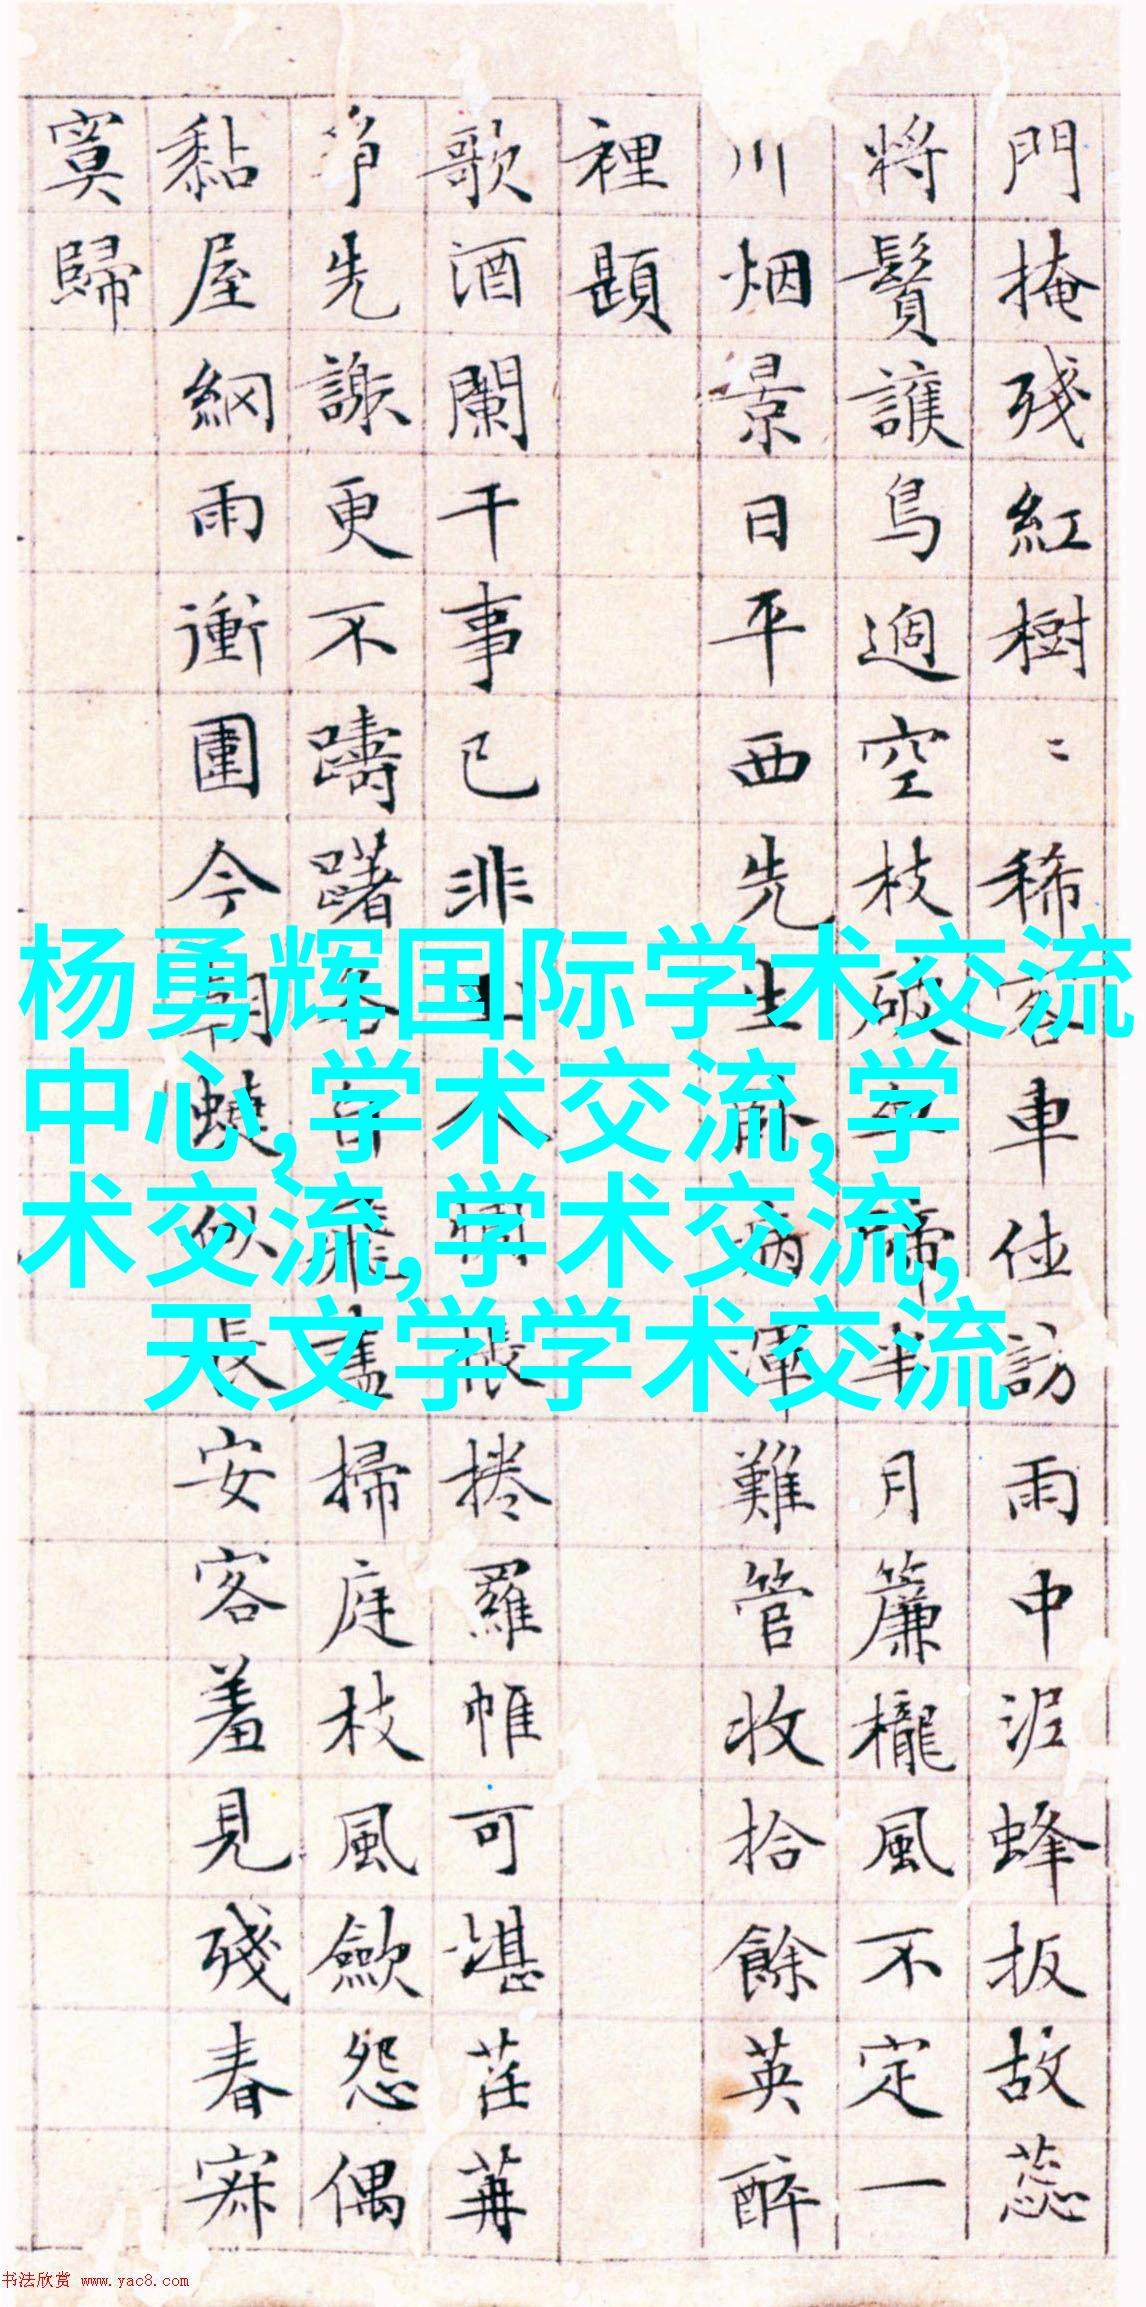 門掩殘紅樹〻稀客車位訪雨中泥蜂扳故蕊
將鬢護鳥過空枝破半月簾櫳風不定一
川烟景日平西先生卧病渾難管收拾餘英醉
裡題
歌酒闌干事已非帳捲羅帷可堪茌苒
爭先謝更不躊躇掃庭枝風歛怨偶
黏屋綱雨衝圍今朝蜨似長安客羞見殘春寂
寞歸
杨勇辉国际学术交流
中心,学术交流,学
术交流,学术交流,
天文学学术交流
书法欣赏 www.yac8.com